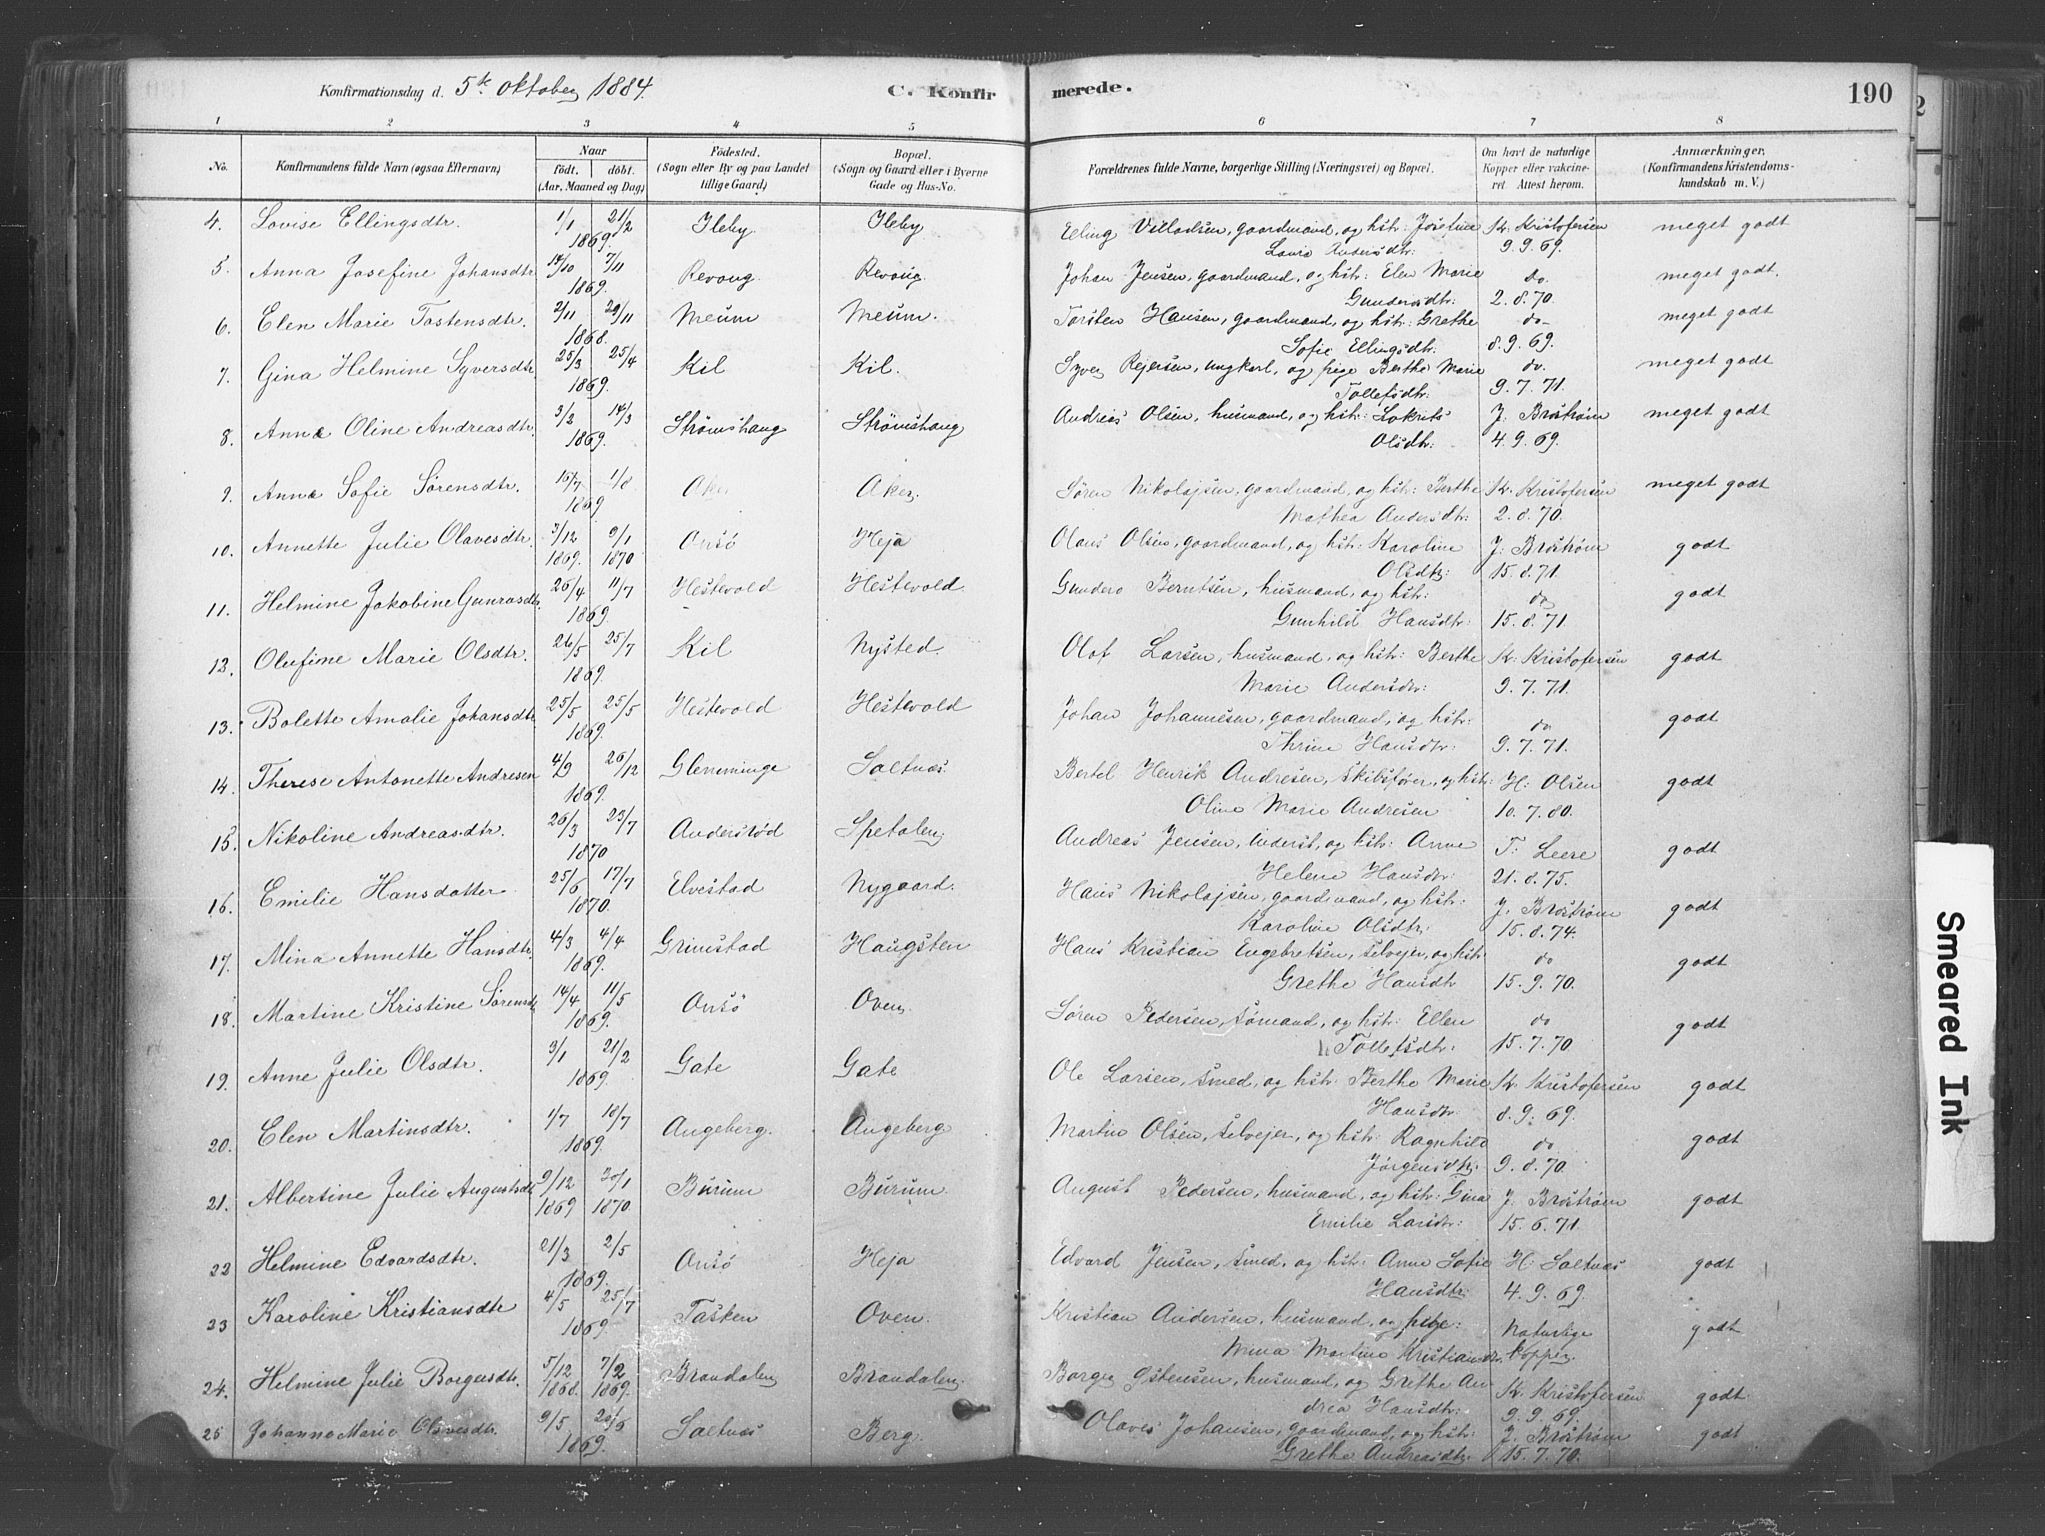 Konfirmationsdag d. 5te Oktober 1884.
C. Konfir
merede.
190
1 2 3 4 5 6 7 8
No. Konfirmandens fulde Navn (ogsaa Efternavn) Naar født. døbt. (Aar, Maaned og Dag) Fødested. (Sogn eller By og paa Landet tillige Gaard) Bopæl. (Sogn og Gaard eller i Byerne Gade og Hus-No. Forældrenes fulde Navne, borgerlige Stilling (Næringsvei) og Bopæl. Om havt de naturlige Kopper eller vakcineret. Attest herom. Anmærkninger. (Konfirmandens Kristendomskundskab m. V.)
4. Lovise Ellingsdtr. 1/1 21/2 Ileby Ileby. Elling Villadsen, gaardmand, og hstr: Josefine Kr. Kristofersen meget godt
1869. Andersdtr: 9.9.69.
5. Anna Josefine Johansdtr 14/10 7/11 Revoug Revoug Johan Jensen, gaardmand, og hstr: Elen Marie do. meget godt.
1869. Gundersdtr: 2.8.70.
6. Elen Marie Tostensdtr. 2/11 29/11 Meum Meum. Torsten Hansen, gaardmand, og hstr: Grethe do- meget godt
1868. Sofie Ellingsdtr: 8.9.69.
7. Gina Helmine Syversdtr. 25/3 25/4 Kil Kil. Syver Rejersen, ungkarl, og pige Berthe Marie do. meget godt
1869. Tollefsdtr: 9.7.71.
8. Anne Oline Andreasdtr. 3/2 14/3 Strømshaug Strømshaug Andreas Olsen, husmand, og hstr: J. Brostrøm meget godt
1869. Olsdtr: 4.9.69.
9. Anne Sofie Sørensdtr. 15/7 1/8 Aker Aker. Søren Nikolajsen, gaardmand, og hstr: Berthe Kr. Kristofersen meget godt
1869 Mathea Andersdtr: 2.8.70.
10. Annette Julie Olavesdtr. 3/12 9/1 Onsö Heja Olaus Olsen, gaardmand, og hstr: Karoline J. Brostrøm godt
1869. 1870 Olsdtr: 15.8.71.
11. Helmine Jakobine Gunrosdtr. 26/4 11/7 Hestevold Hestevold Gundero Berntsen, husmand, og hstr: do godt
1869. Gunhild Hansdtr: 15.8.71.
12. Olufine Marie Olsdtr. 26/5 25/7 Kil Nysted Olof Larsen, husmand, og hstr: Berthe Kr. Kristofersen godt
1869. Marie Andersdtr: 9.7.71.
13. Bolette Amalie Johansdtr 25/5 25/5 Hestevold Hestevold Johan Johannesen, gaardmand, og hstr: do godt
1869. Thrine Hansdtr: 9.7.71.
14. Therese Antonette Andresen 4/9 26/12 Glemminge Saltnæs. Bertel Henrik Andresen, Skibsfører, og hstr: H. Olsen godt
1869. Oline Marie Andresen 10.7.80.
15. Nikoline Andreasdtr. 26/3 23/7 Anderstød Spetalen Andreas Jensen, Inderst, og hstr: Anne T. Leere godt
1870 Helene Hansdtr: 21.8.75.
16. Emilie Hansdatter 25/6 17/7 Elvestad Nygaard. Hans Nikolajsen, gaardmand, og hstr: J. Brostrøm godt
1870. Karoline Olsdtr: 15.8.74.
17. Mina Annette Hansdtr. 4/3 4/4 Grimstad Haugsten Hans Kristian Engebretsen, selvejer, og hstr: do godt
1869. Grethe Hansdtr 15.9.70.
18. Martine Kristine Sørensdtr 14/4 11/5 Onsö Oven. Søren Pedersen, sømand, og hstr: Ellen do godt
1869. Tollefsdtr: 15.7.70
19. Anne Julie Olsdtr. 3/1 21/2 Gate Gate Ole Larsen, smed, og hstr: Berthe Marie Kr. Kristofersen godt
1869. Hansdtr: 8.9.69.
20. Elen Martinsdtr. 1/7 18/7 Augeberg. Augeberg Martin Olsen, selvejer, og hstr: Ragnhild do godt
1869. Jørgensdtr: 9.8.70.
21. Albertine Julie Augustsdtr 9/12 30/1 Burum Burum. August Pedersen, husmand, og hstr: Gina J. Brostrøm godt
1869 1870. Emilie Larsdtr: 15.6.71.
22 Helmine Edvardsdtr. 21/3 2/5 Onsö Heja Edvard Jensen, smed, og hstr: Anne Sofie H. Saltnæs godt
1869. Hansdtr: 4.9.69.
23 Karoline Kristiansdtr 4/5 25/7 Tasken Oven. Kristian Andersen, husmand, og pige: Naturlige godt
1869 Mina Martine Kristiansdtr. kopper.
24. Helmine Julie Borgersdtr. 5/12 7/2 Brondalen Brondalen. Borger Østensen, husmand, og Grethe An Kr. Kristofersen godt
1868. 1869. drea Hansdtr: 9.9.69.
25 Johanne Marie Olavesdtr. 9/5 Saltnæs Berg. Olaves Johansen, gaardmand, og hstr: J. Brostrøm godt
1869. Grethe Andreasdtr. 15.7.70.
Smeared Ink
2